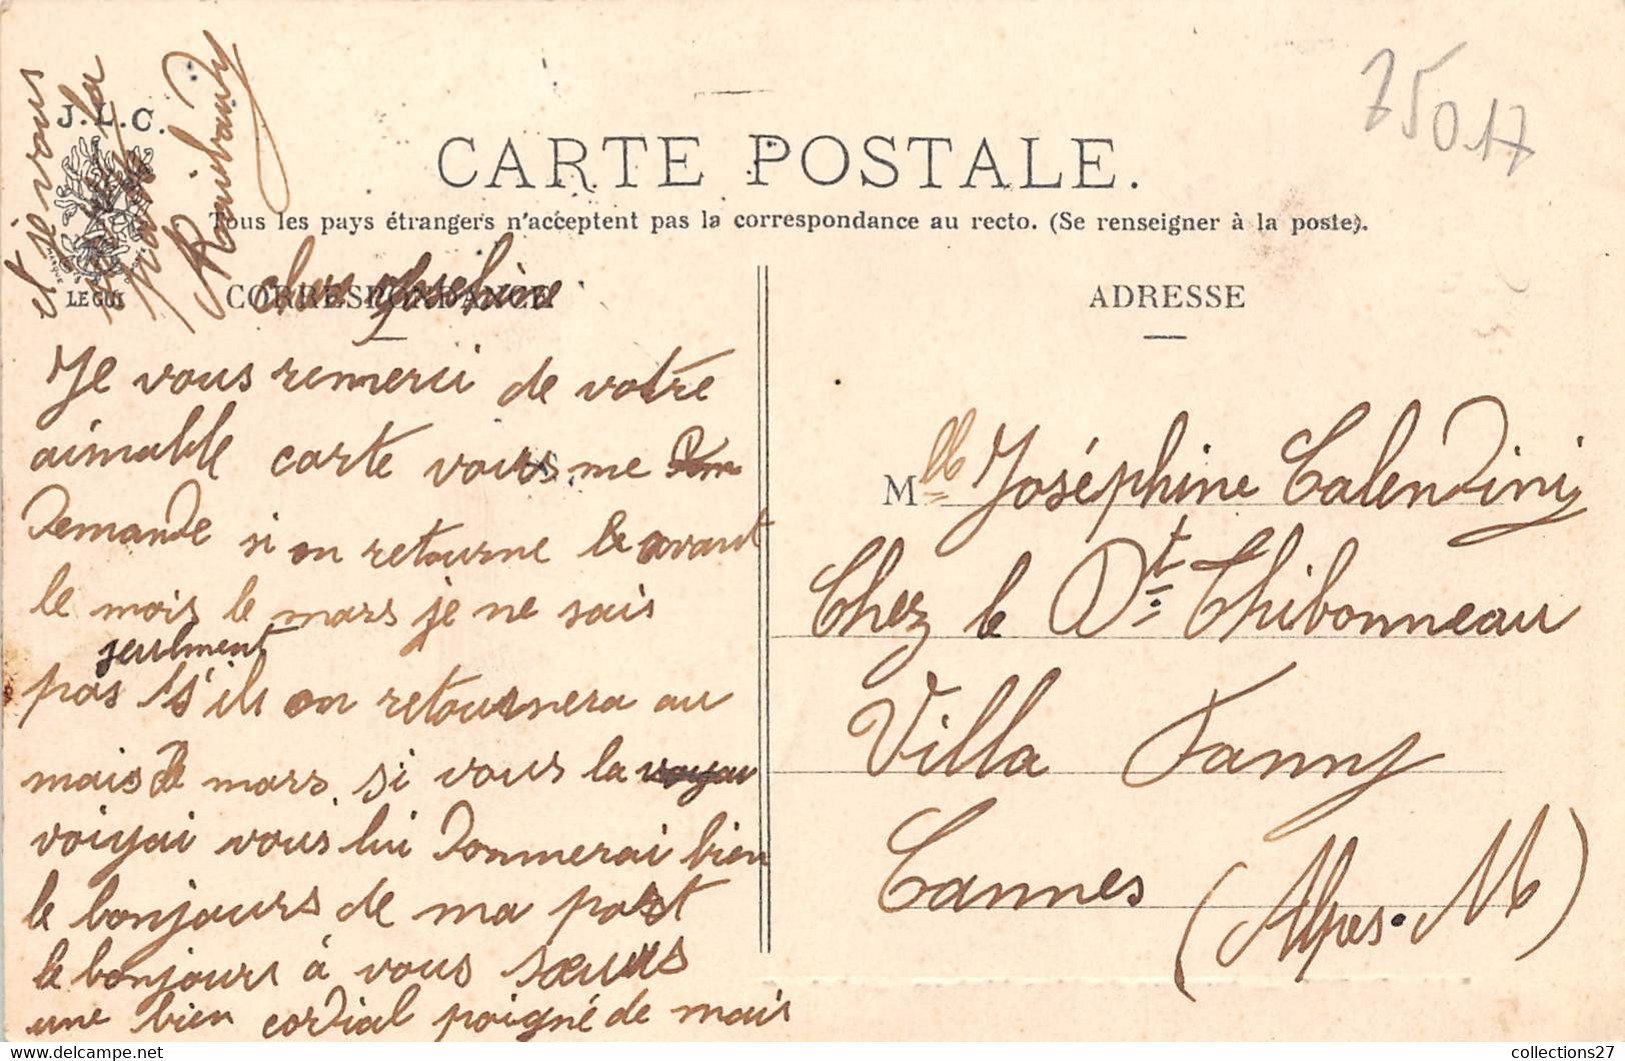 J.L.C.
LE GUI
75017
CARTE POSTALE.
Tous les pays étrangers n'acceptent pas la correspondance au recto. (Se renseigner à la poste).
CORRESPONDANCE
ADRESSE
cher Joséhine
Je vous remerci de votre
aimable carte vous me
demande si on retourne le avant
le mois le mars je ne sais
seulment
pas s'ils on retournera au
mais de mars. si vous la
voiyai vous lui donnerai bien
le bonjours de ma part
le bonjours à vous sœurs
une bien cordial poigné de mais
et je vous
la
Raimbaud
Mlle Joséphine Calendini
Chez le Dt Thibonneau
Villa Fanny
Cannes (Alpes. M)
collections27